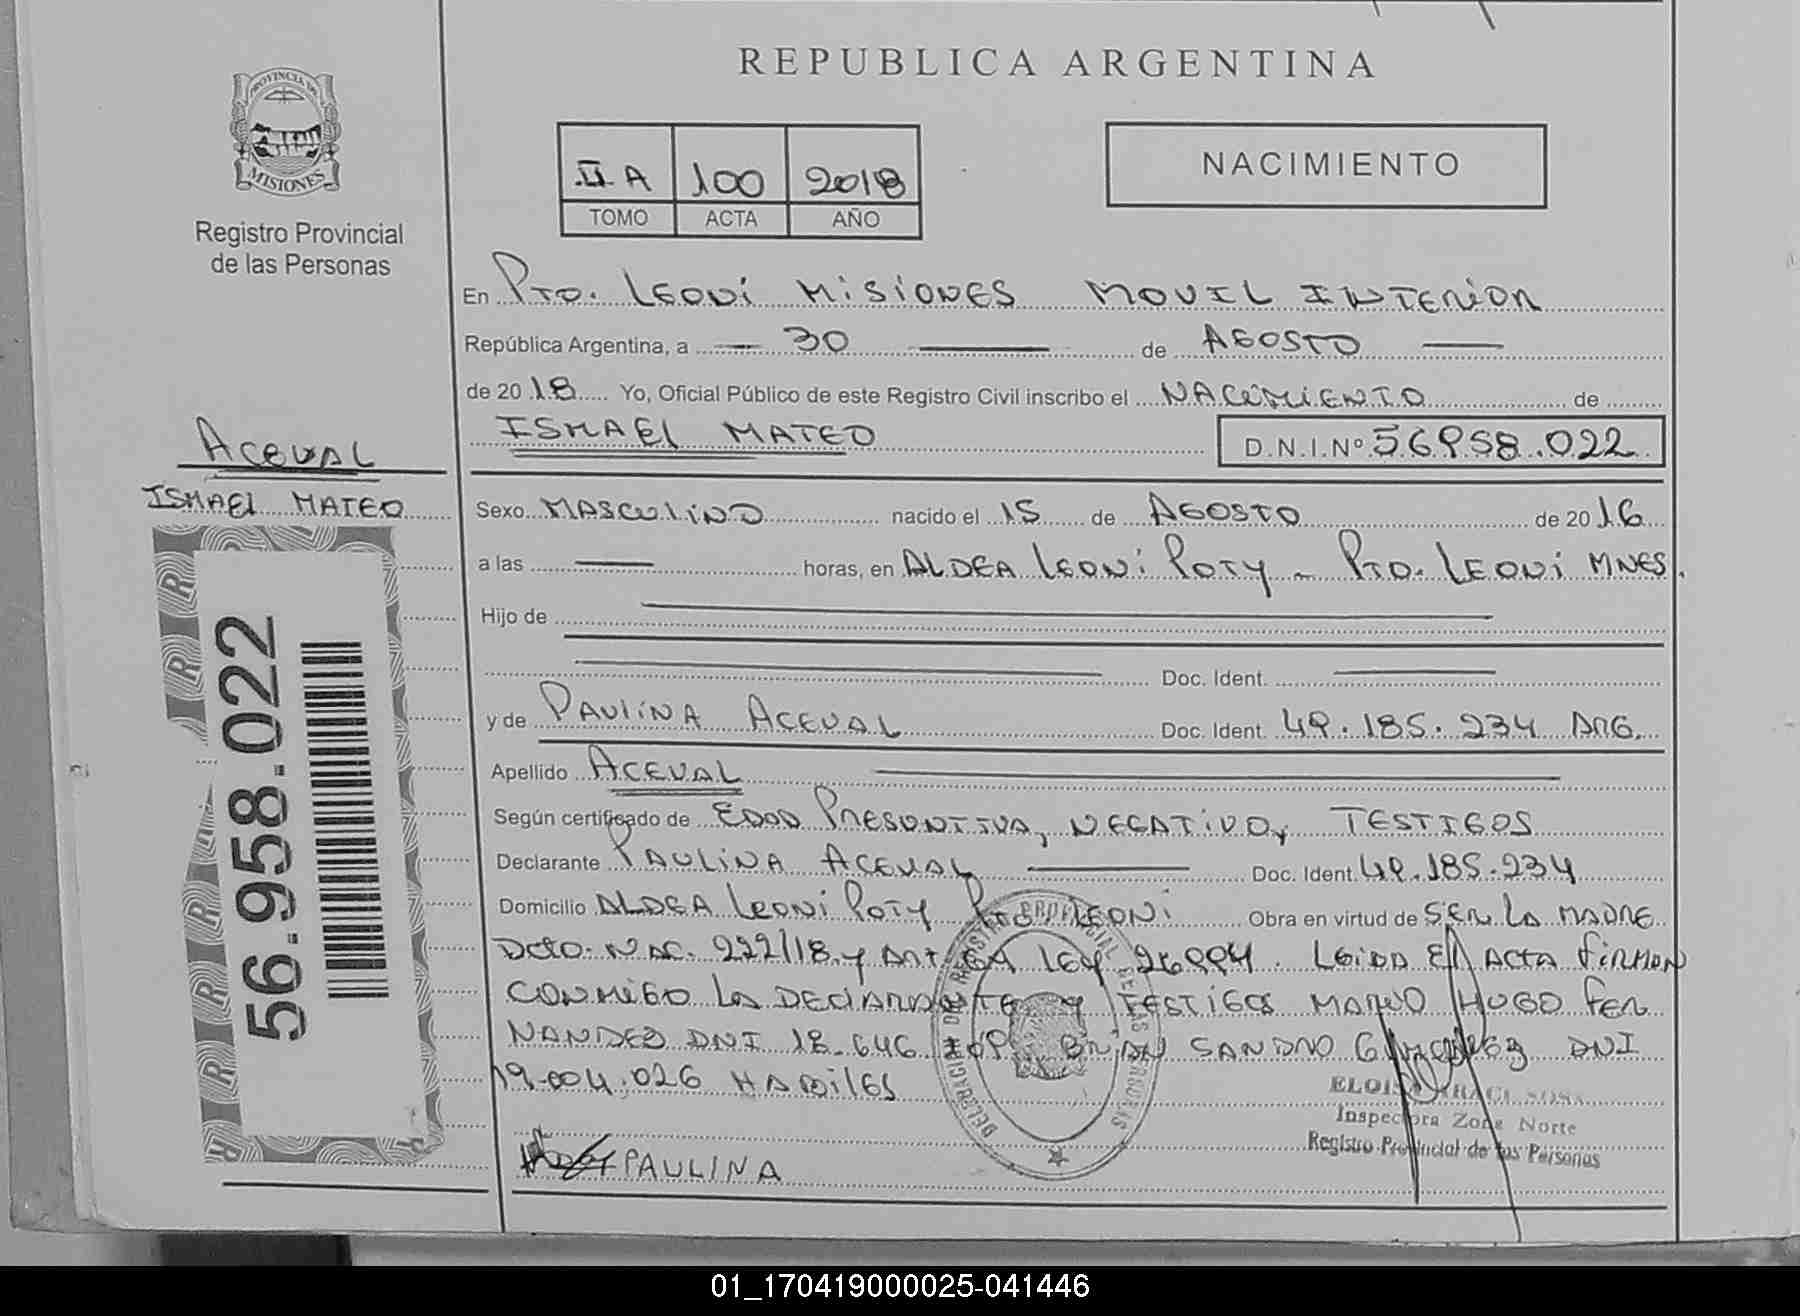 REPUBLICA ARGENTINA
PROVINCIA DE
MISIONES
Registro Provincial
de las Personas
II A 100 2018
TOMO ACTA AÑO
NACIMIENTO
En Pto. Leoni Misiones Movil Interior
República Argentina, a 30 de Agosto
de 2018 Yo, Oficial Público de este Registro Civil inscribo el NACIMIENTO de
ISMAEL MATEO D.N.I.Nº 56958.022
ACEVAL
ISMAEL MATEO
Sexo MASCULINO nacido el 15 de AGOSTO de 2016
a las horas, en ALDEA Leoni Poty - Pto. Leoni MNES.
Hijo de
Doc. Ident.
y de PAULINA ACEVAL Doc. Ident. 49.185.234 ARG.
Apellido ACEVAL
Según certificado de EDAD PRESUNTIVA, NEGATIVO, TESTIGOS
Declarante PAULINA ACEVAL Doc. Ident. 49.185.234
Domicilio ALDEA Leoni Poty Pto. LEONI Obra en virtud de SER LA MADRE
Dcto. NAC. 222/18 y Art. LEY 26994. LEIDA EL ACTA FIRMAN
CONMIGO LA DECLARANTE y TESTIGOS MARIO HUGO FER
NANDEZ DNI 18.646 BRIAN SANDRO DNI
19.004.026 HABILES
PAULINA
56.958.022
Inspectora Zona Norte
Registro Provincial de las Personas
01_170419000025-041446